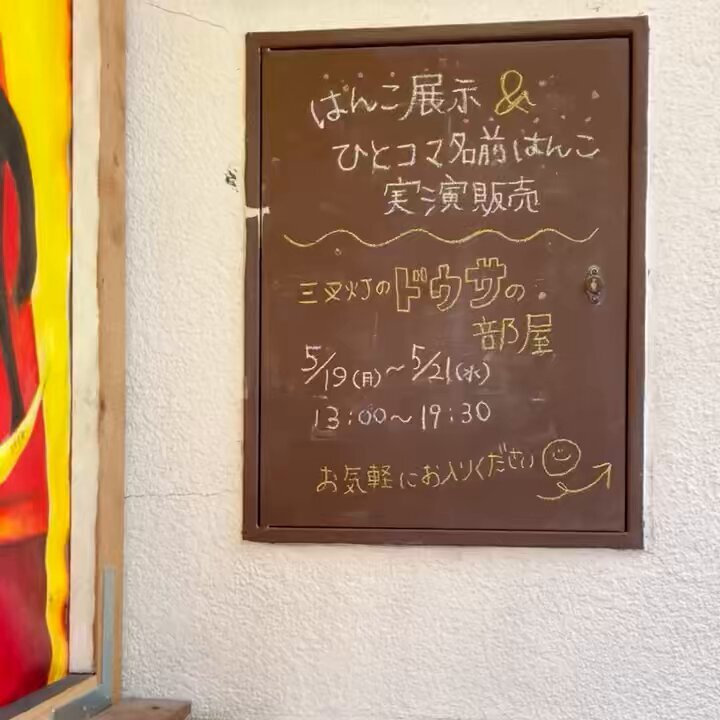 はんこ展示 &
ひとコマ名前はんこ
実演販売
三叉灯のドウサの
部屋
5/19(月)〜5/21(水)
13:00〜19:30
お気軽にお入りください